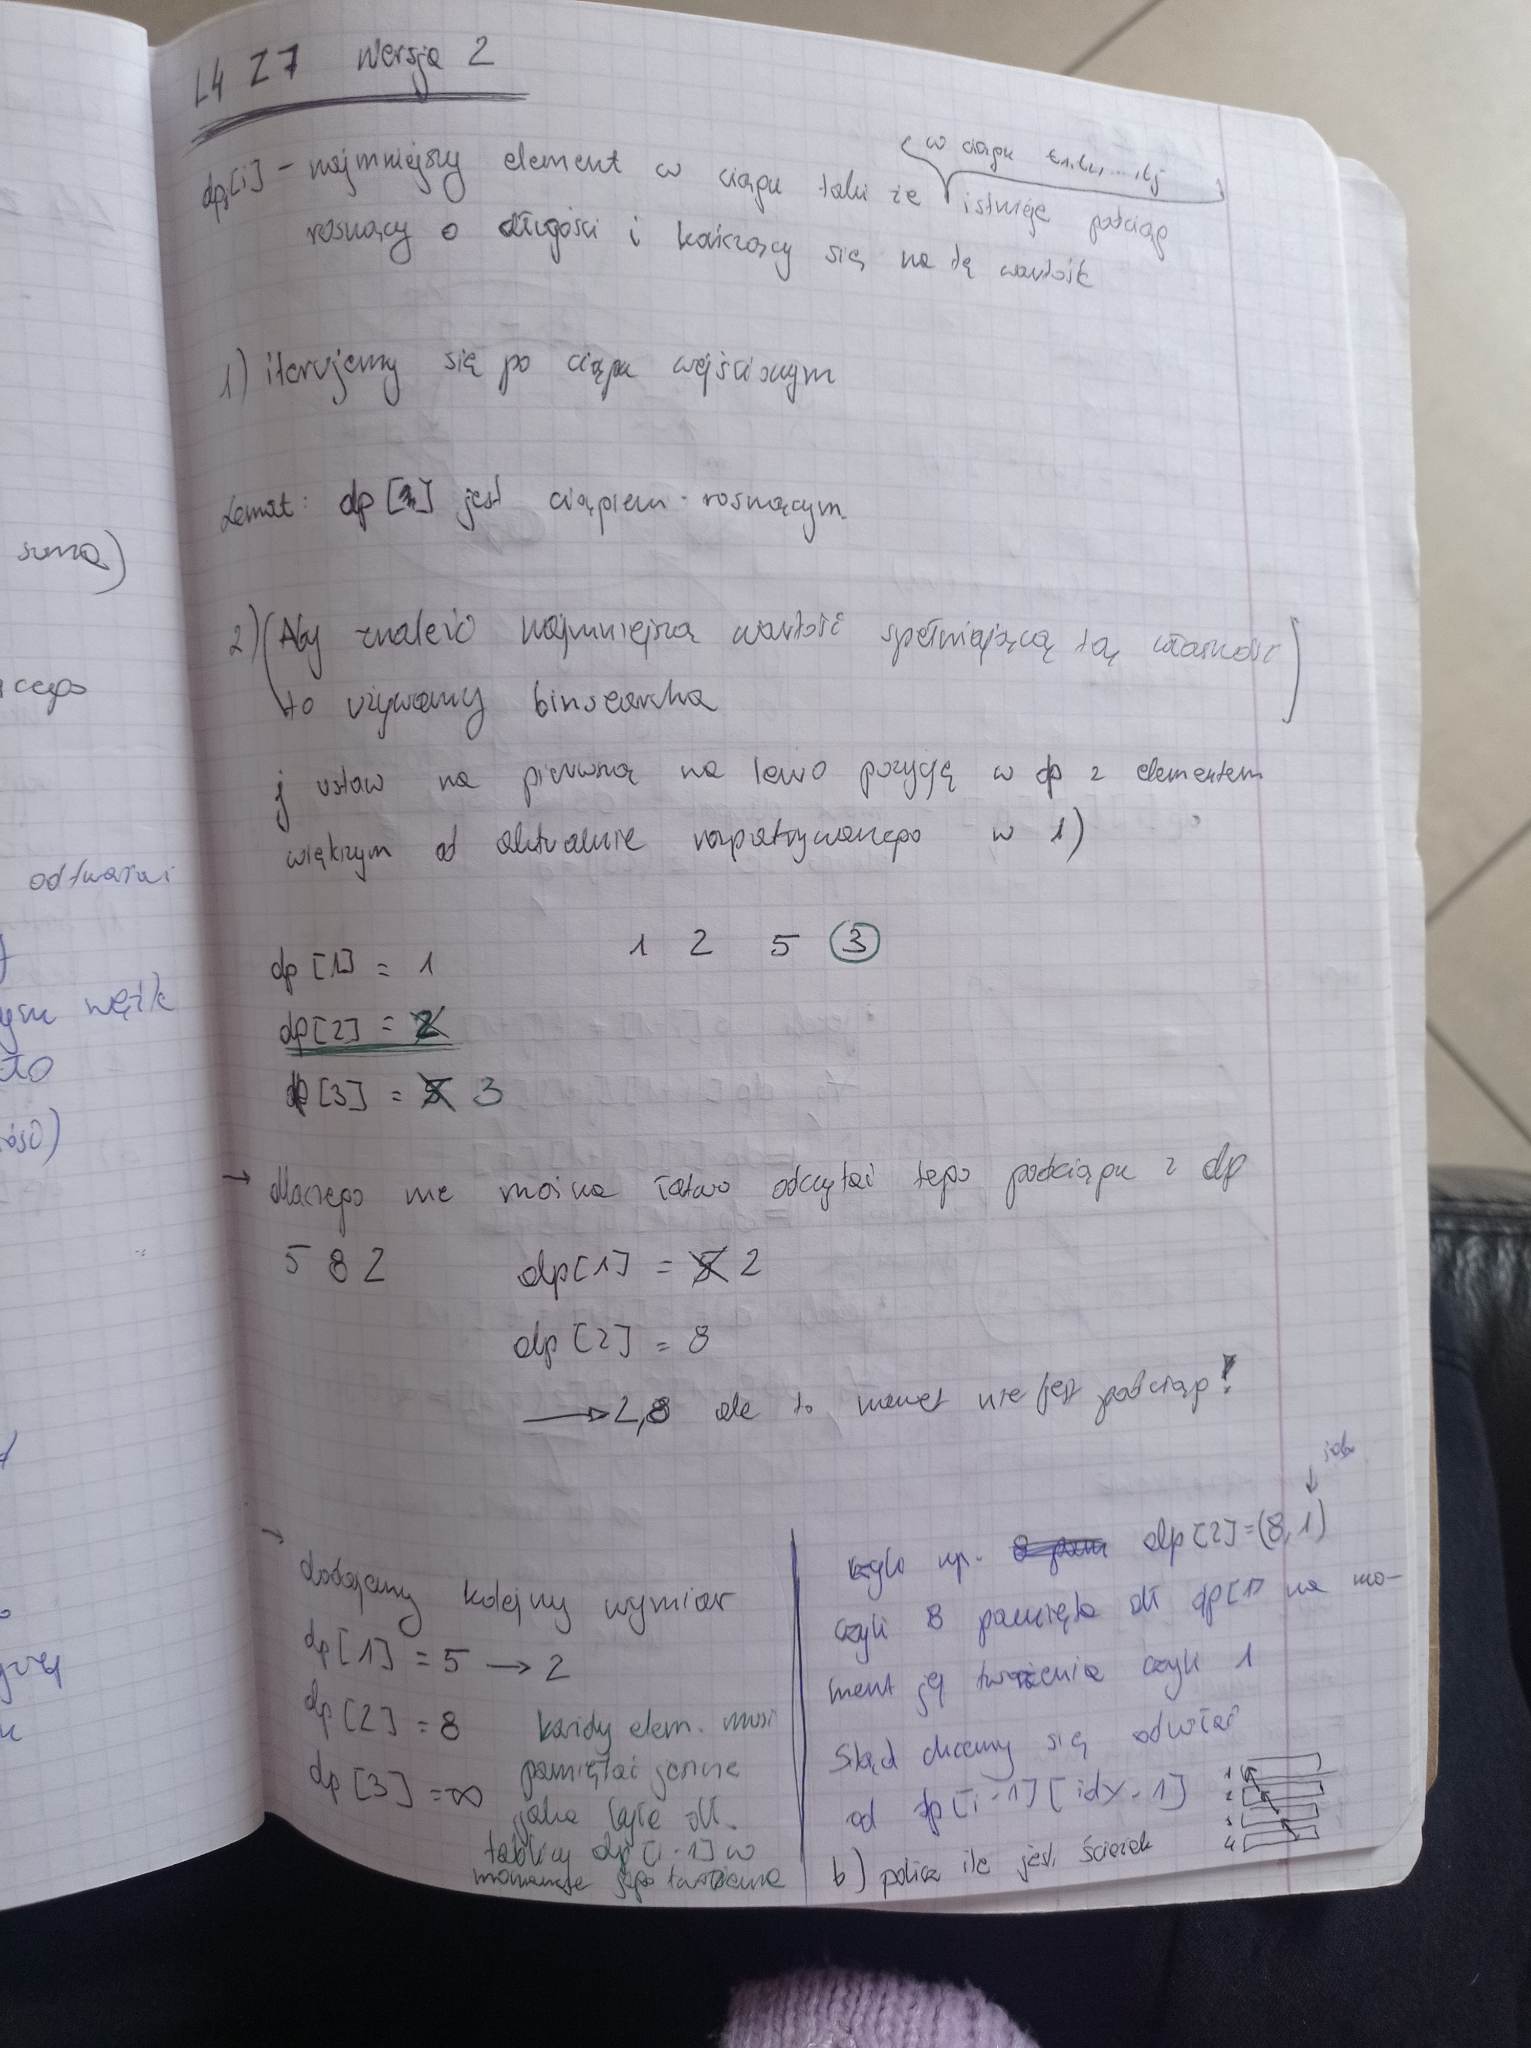 L4 Z7 wersja 2
w ciągu
dp[i] - najmniejszy element w ciągu taki że istnieje podciąg
rosnący o długości i kończący się na tą wartość
1) iterujemy się po ciągu wejściowym
Lemat: dp[] jest ciągiem rosnącym.
2) (Aby znaleźć najmniejszą wartość spełniającą tą własność
to używamy binsearcha)
j ustaw na pierwszą na lewo pozycję w dp z elementem
większym od aktualnie rozpatrywanego w 1)
1 2 5 3
dp[1] = 1
dp[2] = 2
dp[3] = 5 3
→ dlaczego nie można łatwo odczytać tego podciągu z dp
5 8 2
dp[1] = 5 2
dp[2] = 8
→ 2,8 ale to nawet nie jest podciąg!
→ dodajemy kolejny wymiar
dp[1] = 5 → 2
dp[2] = 8
dp[3] = ∞
każdy elem. musi
pamiętać jeszcze
jaka była dł.
tablicy dp[i-1] w
momencie jego tworzenia
idx
↓
czyli np. dp[2]=(8,1)
czyli 8 pamięta dł dp[1] na mo-
ment jej tworzenia czyli 1
Stąd chcemy się odwołać
od dp[i-1][idx-1]
1
2
3
4
b) policz ile jest ścieżek
suma)
cego
odtwarzać